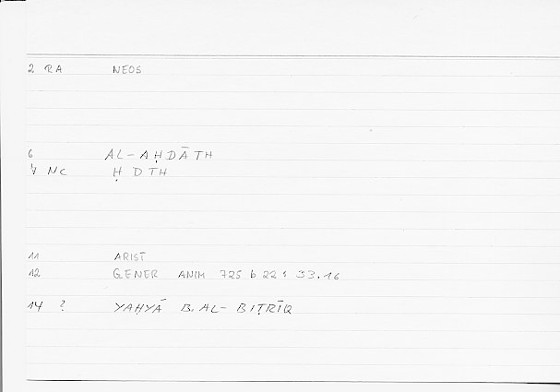 2 RA NEOS
6 AL-AḤDĀTH
V NC Ḥ D TH
11 ARIST
12 GENER ANIM 725 b 22 : 33.16
14 ? YAḤYĀ B. AL-BIṬRĪQ